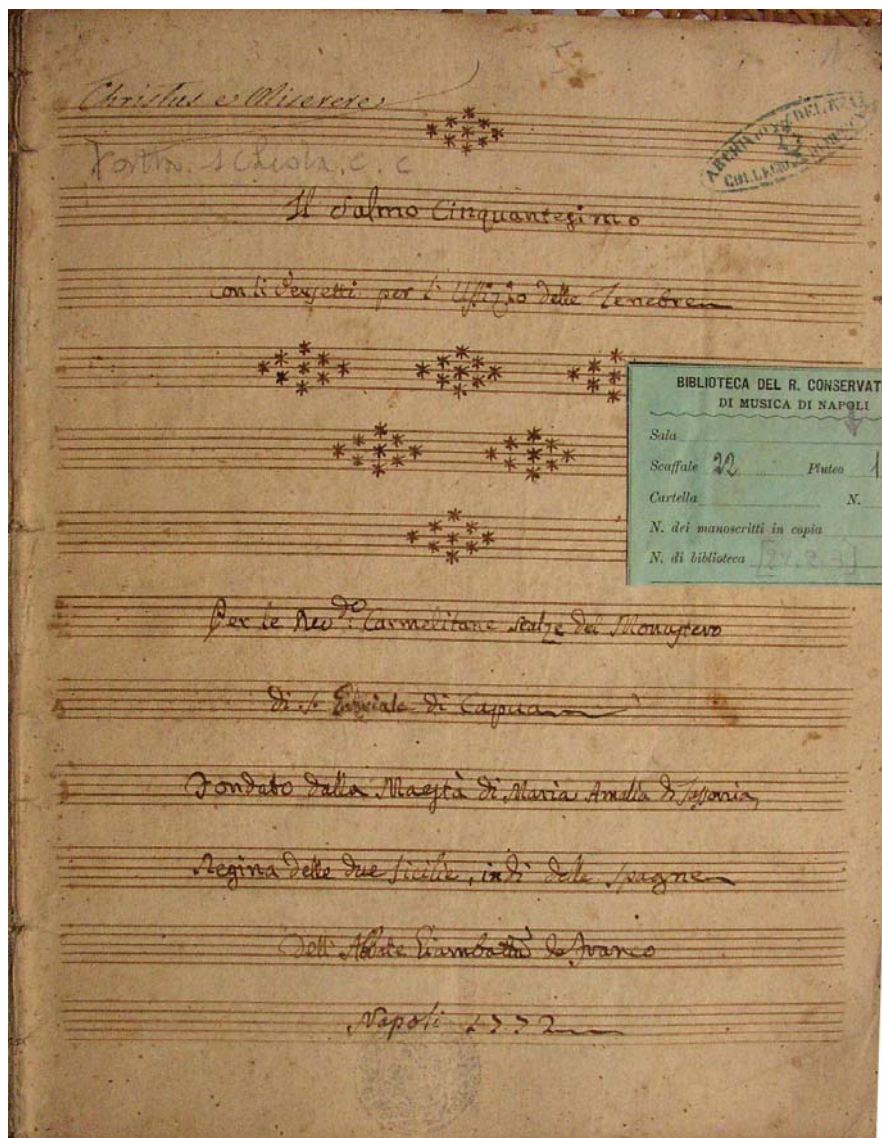 1
Christus e Miserere
ARCHIVIO DEL REAL
COLLEGIO DI MUSICA
Il Salmo Cinquantesimo
con li Versetti per l'Uffizio delle Tenebre
BIBLIOTECA DEL R. CONSERVAT
DI MUSICA DI NAPOLI
Sala
Scaffale 22 Pluteo 1
Cartella N.
N. dei manoscritti in copia
N. di biblioteca
Per le Revde. Carmelitane scalze del Monastero
di S. Gabriale di Capua
Fondato dalla Maestà di Maria Amalia di Sassonia,
Regina delle due Sicilie, indi delle Spagne
Dell'Abbate Giambatta de Franco
Napoli 1772